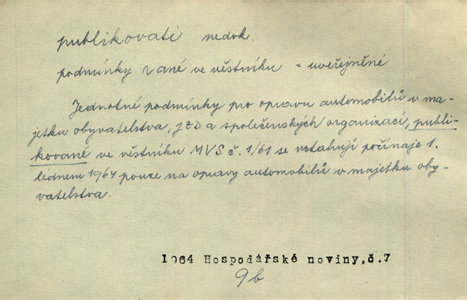 publikovati nedok.
podmínky ~ané ve věstníku - uveřejněné
Jednotné podmínky pro opravu automobilů v ma-
jetku obyvatelstva, JZD a společenských organisací, publi-
kované ve věstníku MVS č. 1/61 se vztahují počínaje 1.
lednem 1964 pouze na opravy automobilů v majetku oby-
vatelstva.
1964 Hospodářské noviny,č.7
9b